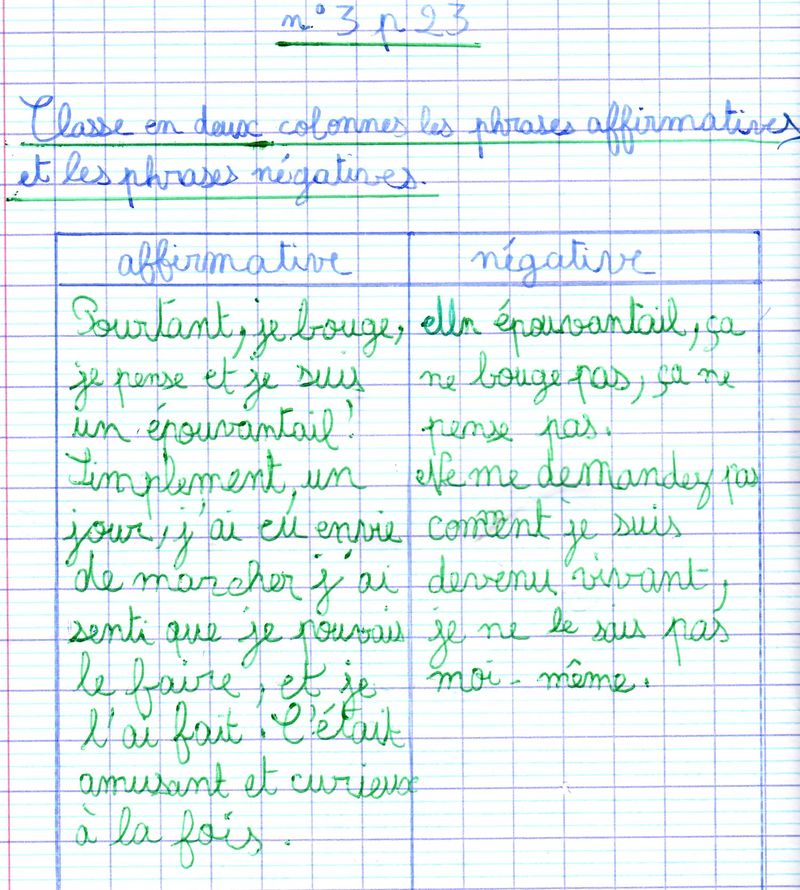 n° 3 p 23
Classe en deux colonnes les phrases affirmatives
et les phrases négatives.
affirmative
Pourtant, je bouge,
je pense et je suis
un épouvantail !
Simplement, un
jour, j'ai eu envie
de marcher j'ai
senti que je pouvais
le faire, et je
l'ai fait. C'était
amusant et curieux
à la fois.
négative
Un épouvantail, ça
ne bouge pas, ça ne
pense pas.
Ne me demandez pas
comment je suis
devenu vivant,
je ne le sais pas
moi-même.